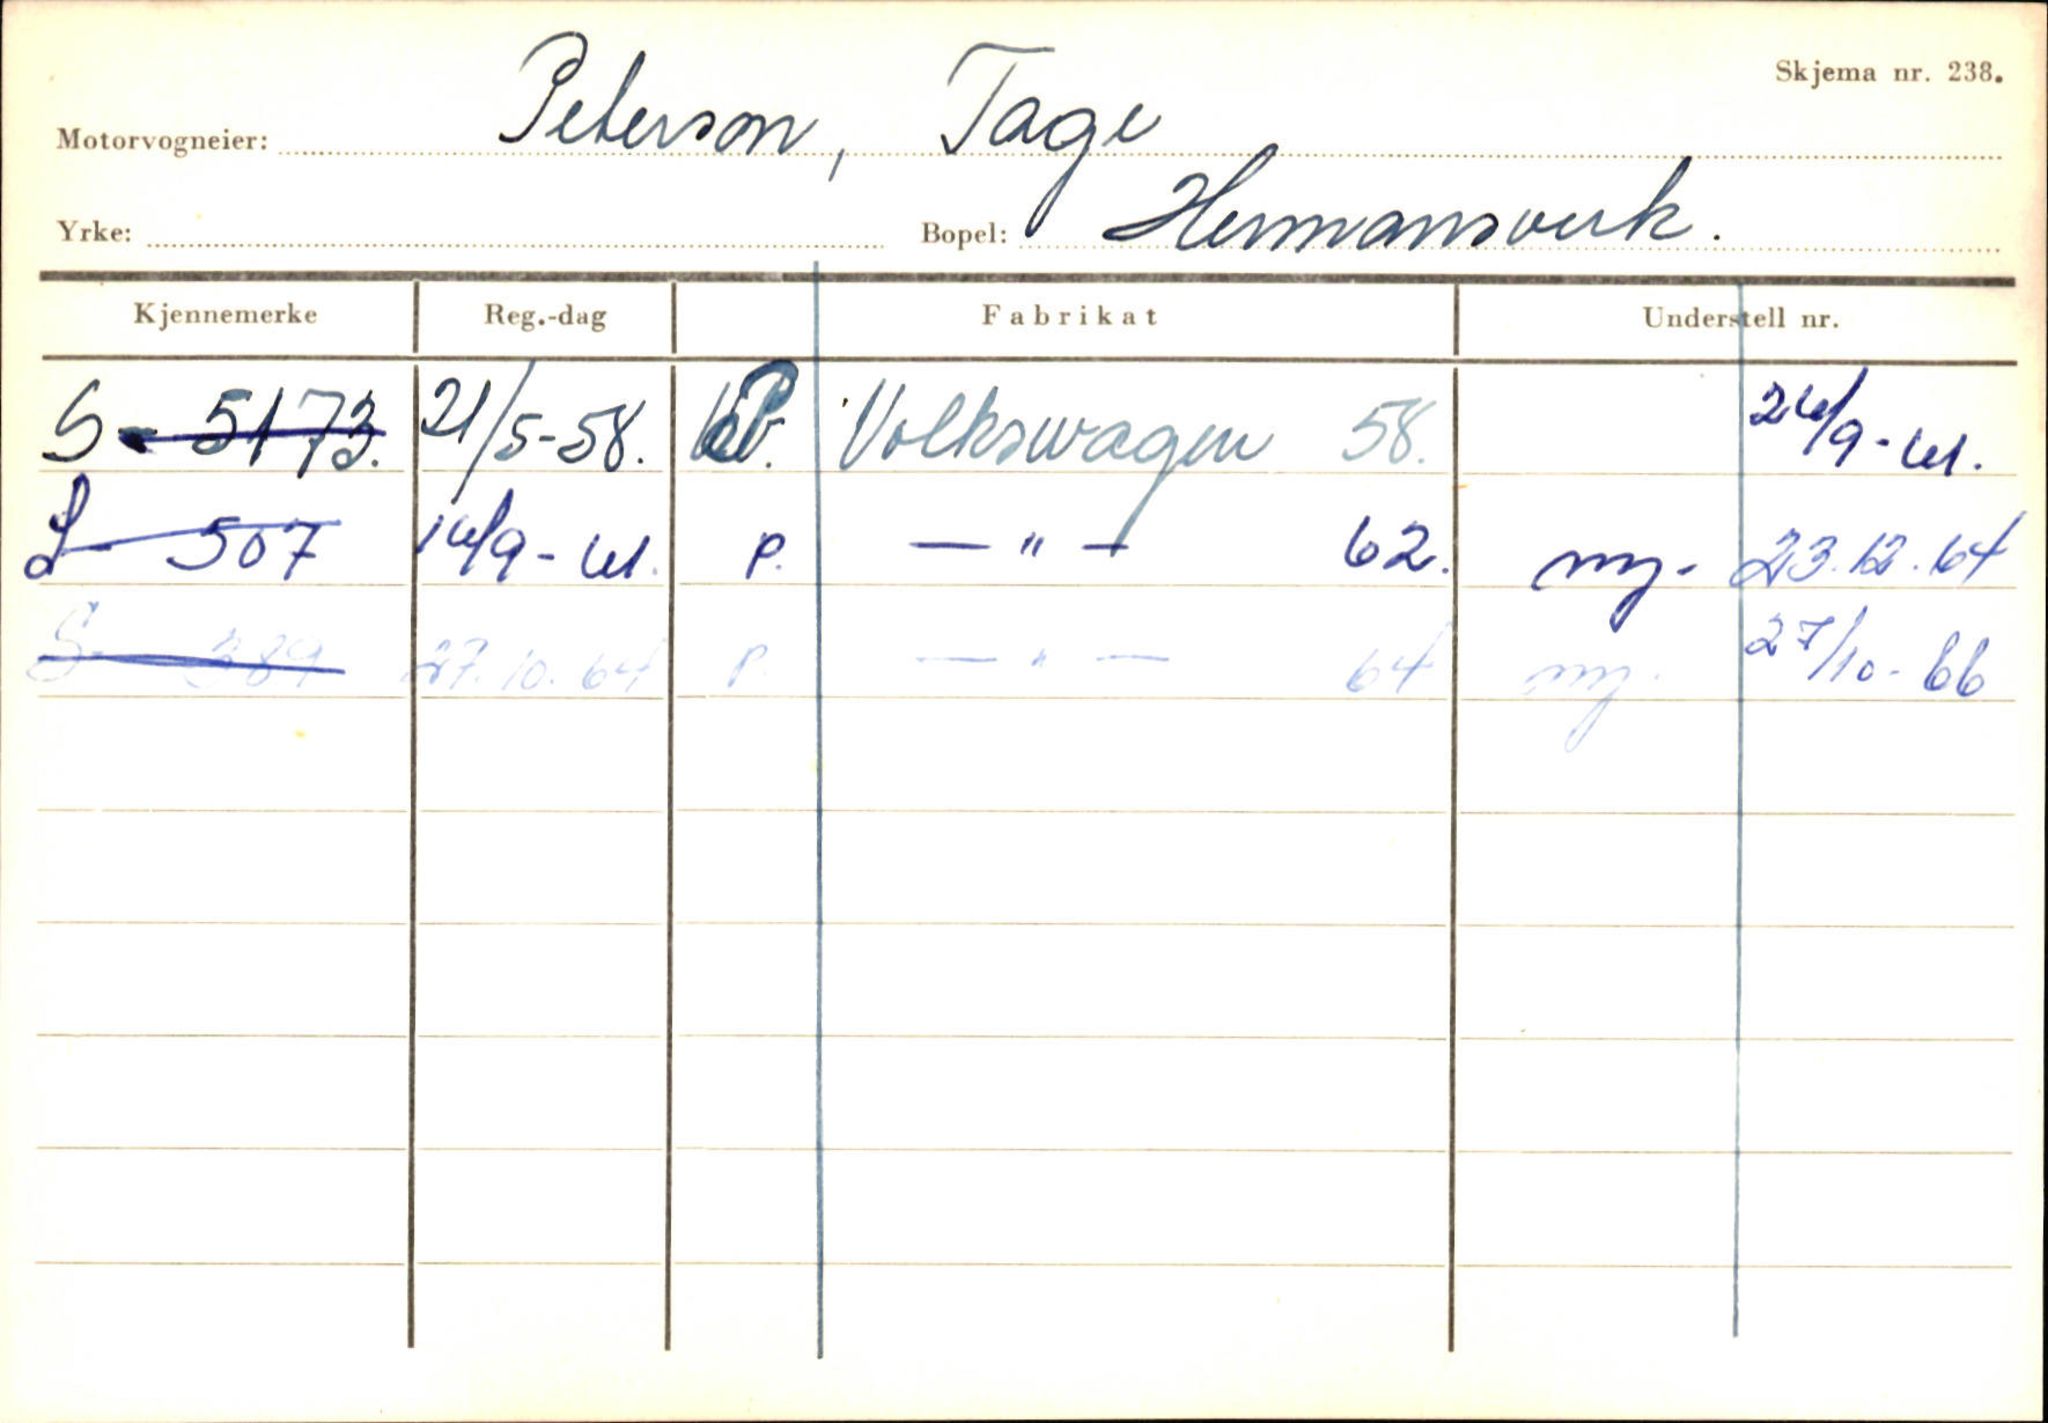 Skjema nr. 238.
Motorvogneier: Peterson, Tage
Yrke: Bopel: Hermansverk.
Kjennemerke Reg.-dag Fabrikat Understell nr.
S - 5173. 21/5-58. P. Volkswagen 58. 26/9-61.
S - 507 16/9-61. P. — " — 62. ny. 23.12.64
S - 389 27.10.64 P. — " — 64 ny. 27/10-66